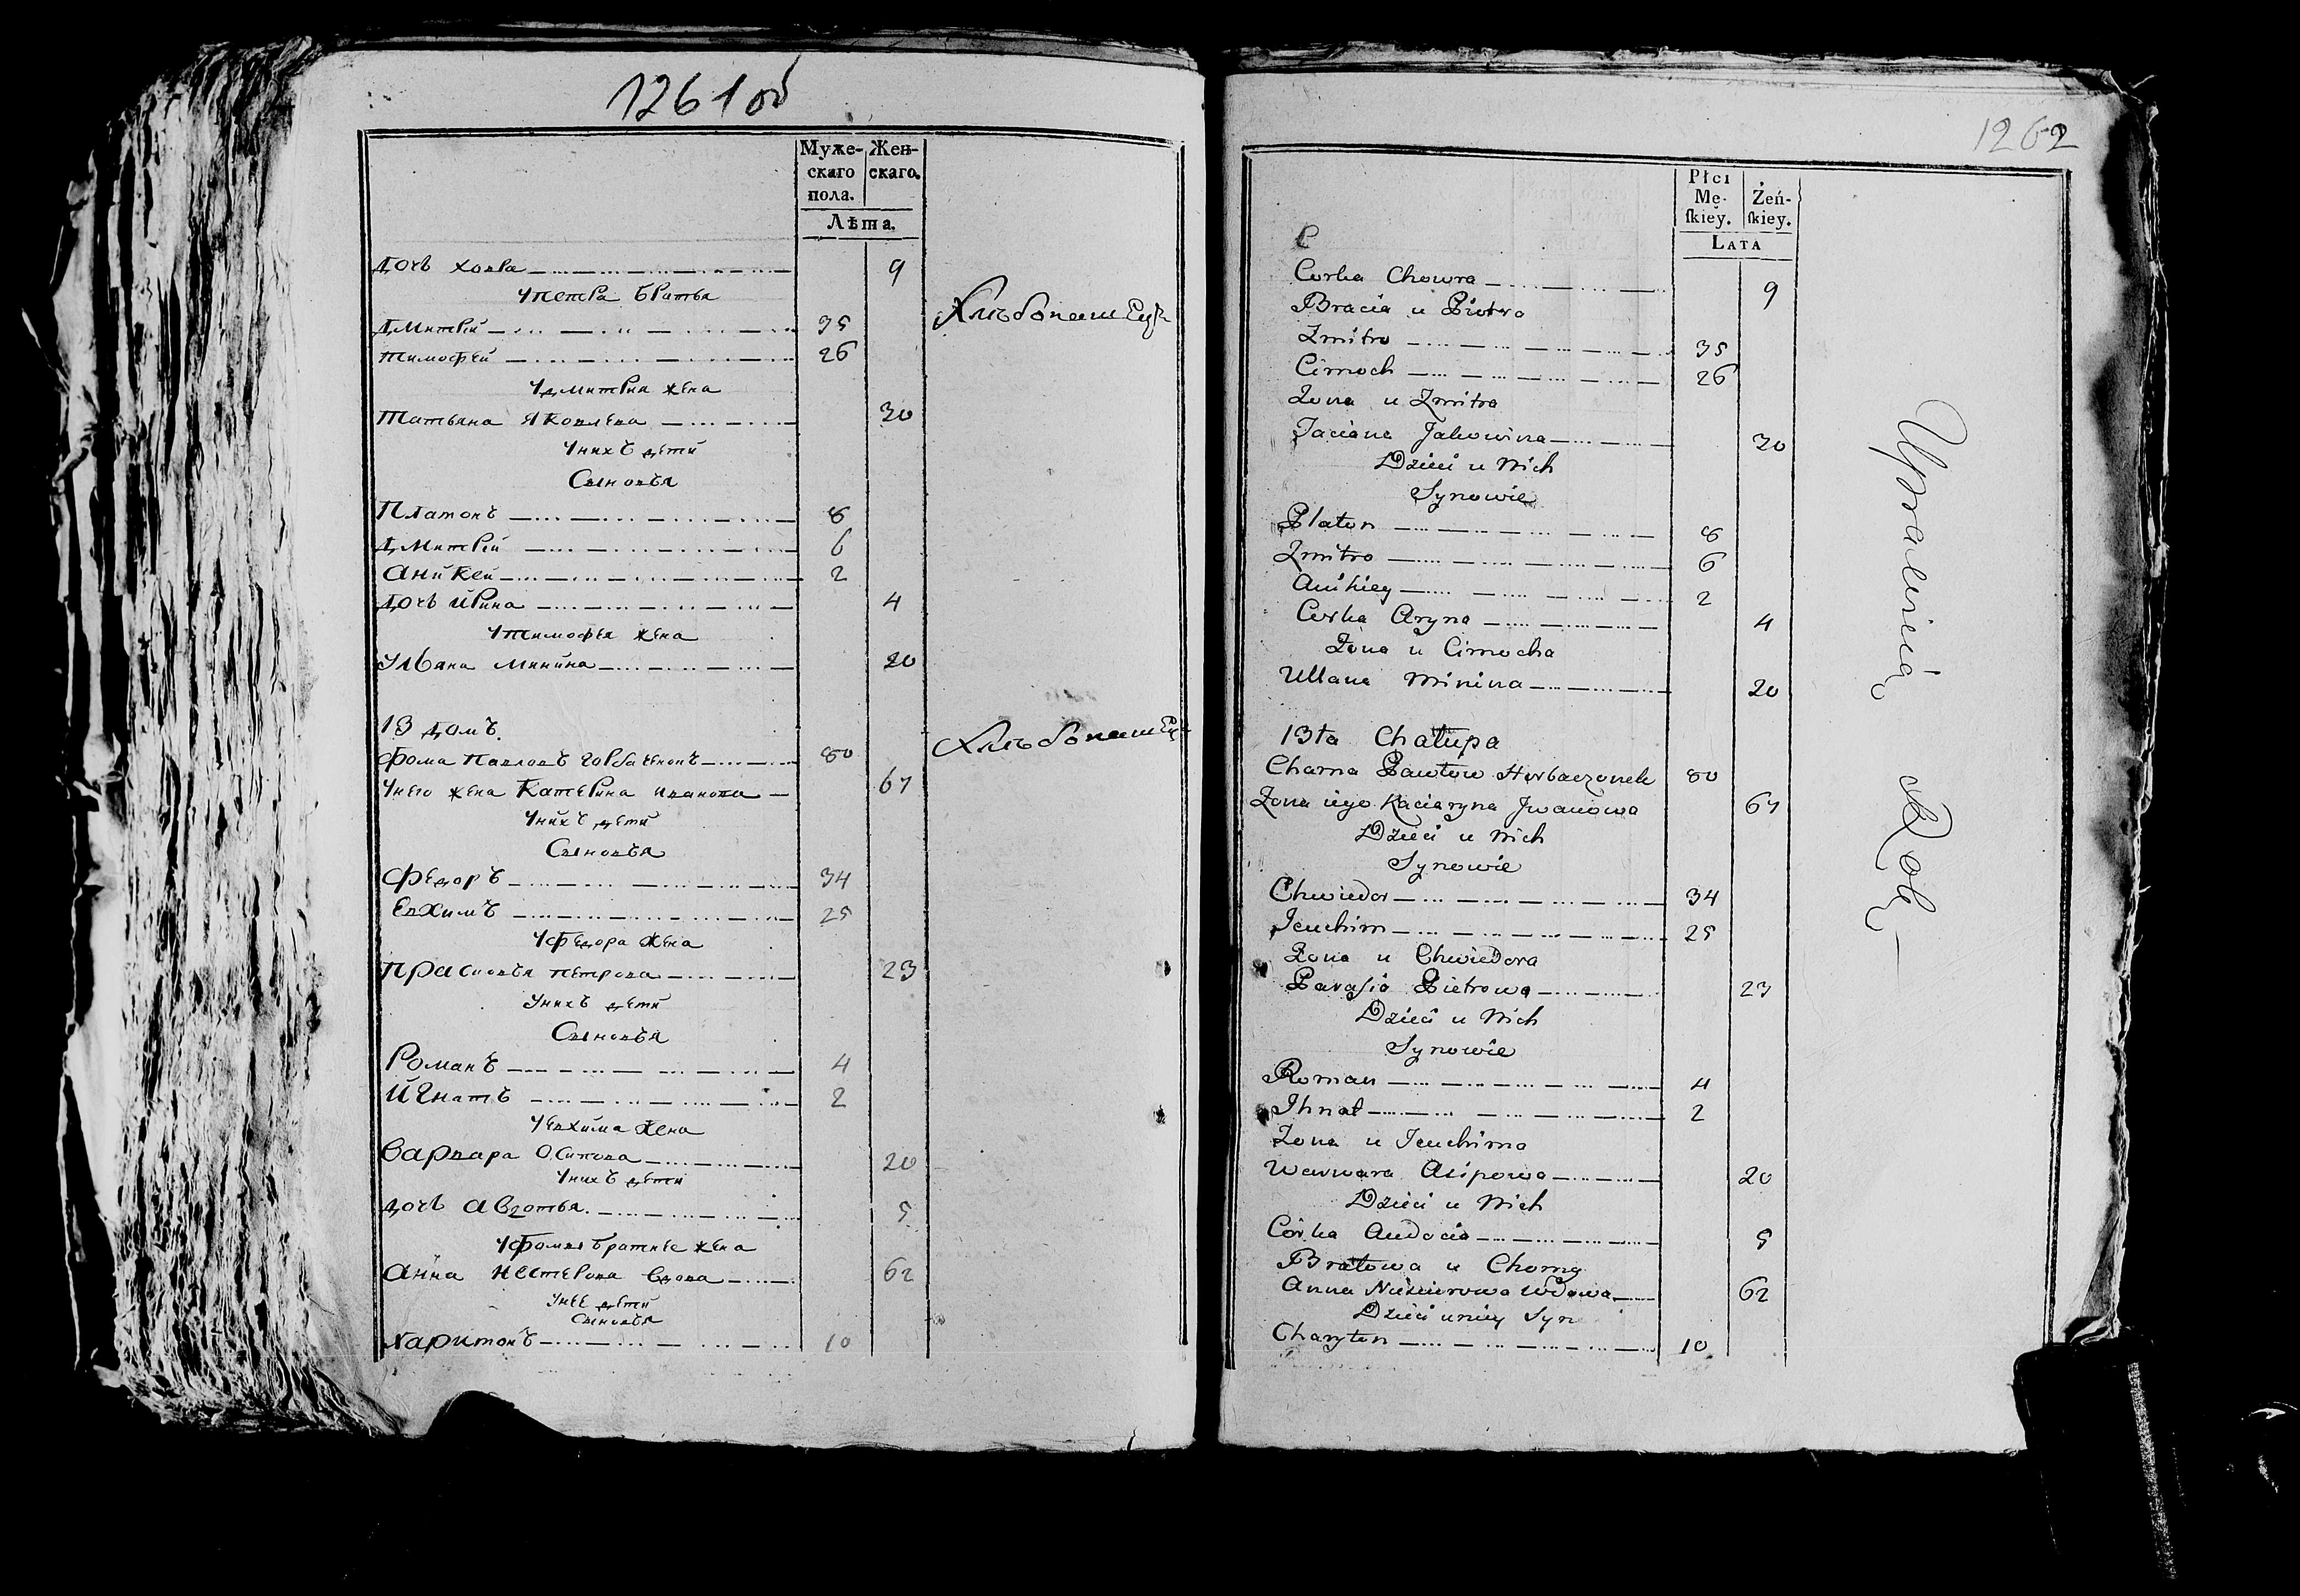 1261 об
Муже-
скаго
пола.
Жен-
скаго.
Лѣта.
дочь ховра 9
упетра братья
дмитрей 35
тимофей 26
Хлѣбопашецъ
удмитрия жена
татьяна яковлева 30
унихъ дети
Сыновья
Платонъ 8
дмитрей 6
аникей 2
дочь ирина 4
утимофея жена
ульяна минина 20
13 домъ
фома павловъ горбаченокъ 80
Хлѣбопашецъ
унего жена катерина иванова 67
унихъ дети
Сыновья
федоръ 34
евхимъ 25
уфедора жена
прасковья петрова 23
унихъ дети
Сыновья
романъ 4
игнатъ 2
уевхима жена
варвара осипова 20
унихъ дети
дочь авдотья 5
уфомы братнее жена
анна нестерова вдова 62
унее дети
сыновья
харитонъ 10
1262
Płci
Mę-
ſkiey.
Żeń-
ſkiey.
LATA
C
Corka Chowra 9
Bracia u Piotra
Zmitro 35
Cimoch 26
Zona u Zmitra
Taciana Jakowina 30
Dzieci u Nich
Synowie
Platon 8
Zmitro 6
Anikiey 2
Corka Aryna 4
Zona u Cimocha
Ullana Minina 20
13ta Chałupa
Choma Pawłow Horbaczonek 80
Zona iego Kaciaryna Jwanowa 67
Dzieci u Nich
Synowie
Chwiedor 34
Jeuchim 25
Zona u Chwiedora
Parasia Pietrowa 23
Dzieci u Nich
Synowie
Roman 4
Ihnat 2
Zona u Jeuchima
Warwara Asipowa 20
Dzieci u Nich
Córka Audocia 5
Bratowa u Chomy
Anna Wdowa 62
Dzieci uniey Syn
Charyton 10
Uprawiaią Rolę